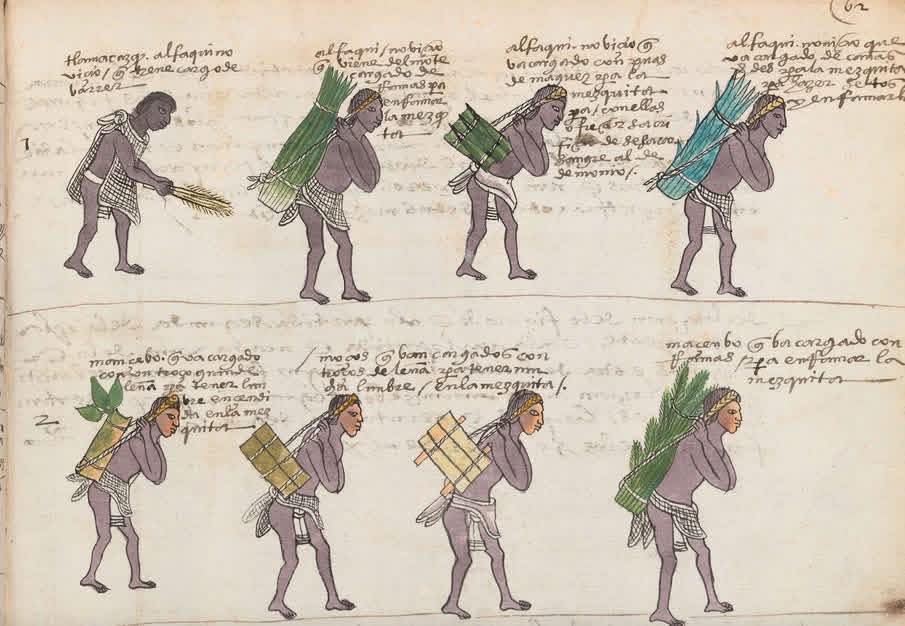 62
tlamacazq. alfaqui no
viçio / q̃ tiene cargo de
barrer
alfaqui / noviçio
q̃ viene del mõte
cargado de
Ramas pa
enRamar
la mezq̃
ta
alfaqui. noviçio q̃
va cargado con puas
de maguez / para la
mezquita
pa /
sacri
fiçio de
sangre al de
demonio /.
alfaqui. noviçio que
va cargado de cañas
para la mezquita
para hazer
y enRamar la
1
mançebo. q̃ va cargado
con un troço grande
leña pa tener lum
bre ençendi
da en la mez
quita
moços q̃ ban cargados con
troços de leña / para tener
lumbre / en la mezquita /.
mançebo q̃ ba cargado con
Ramas / para enRamar la
mezquita
2